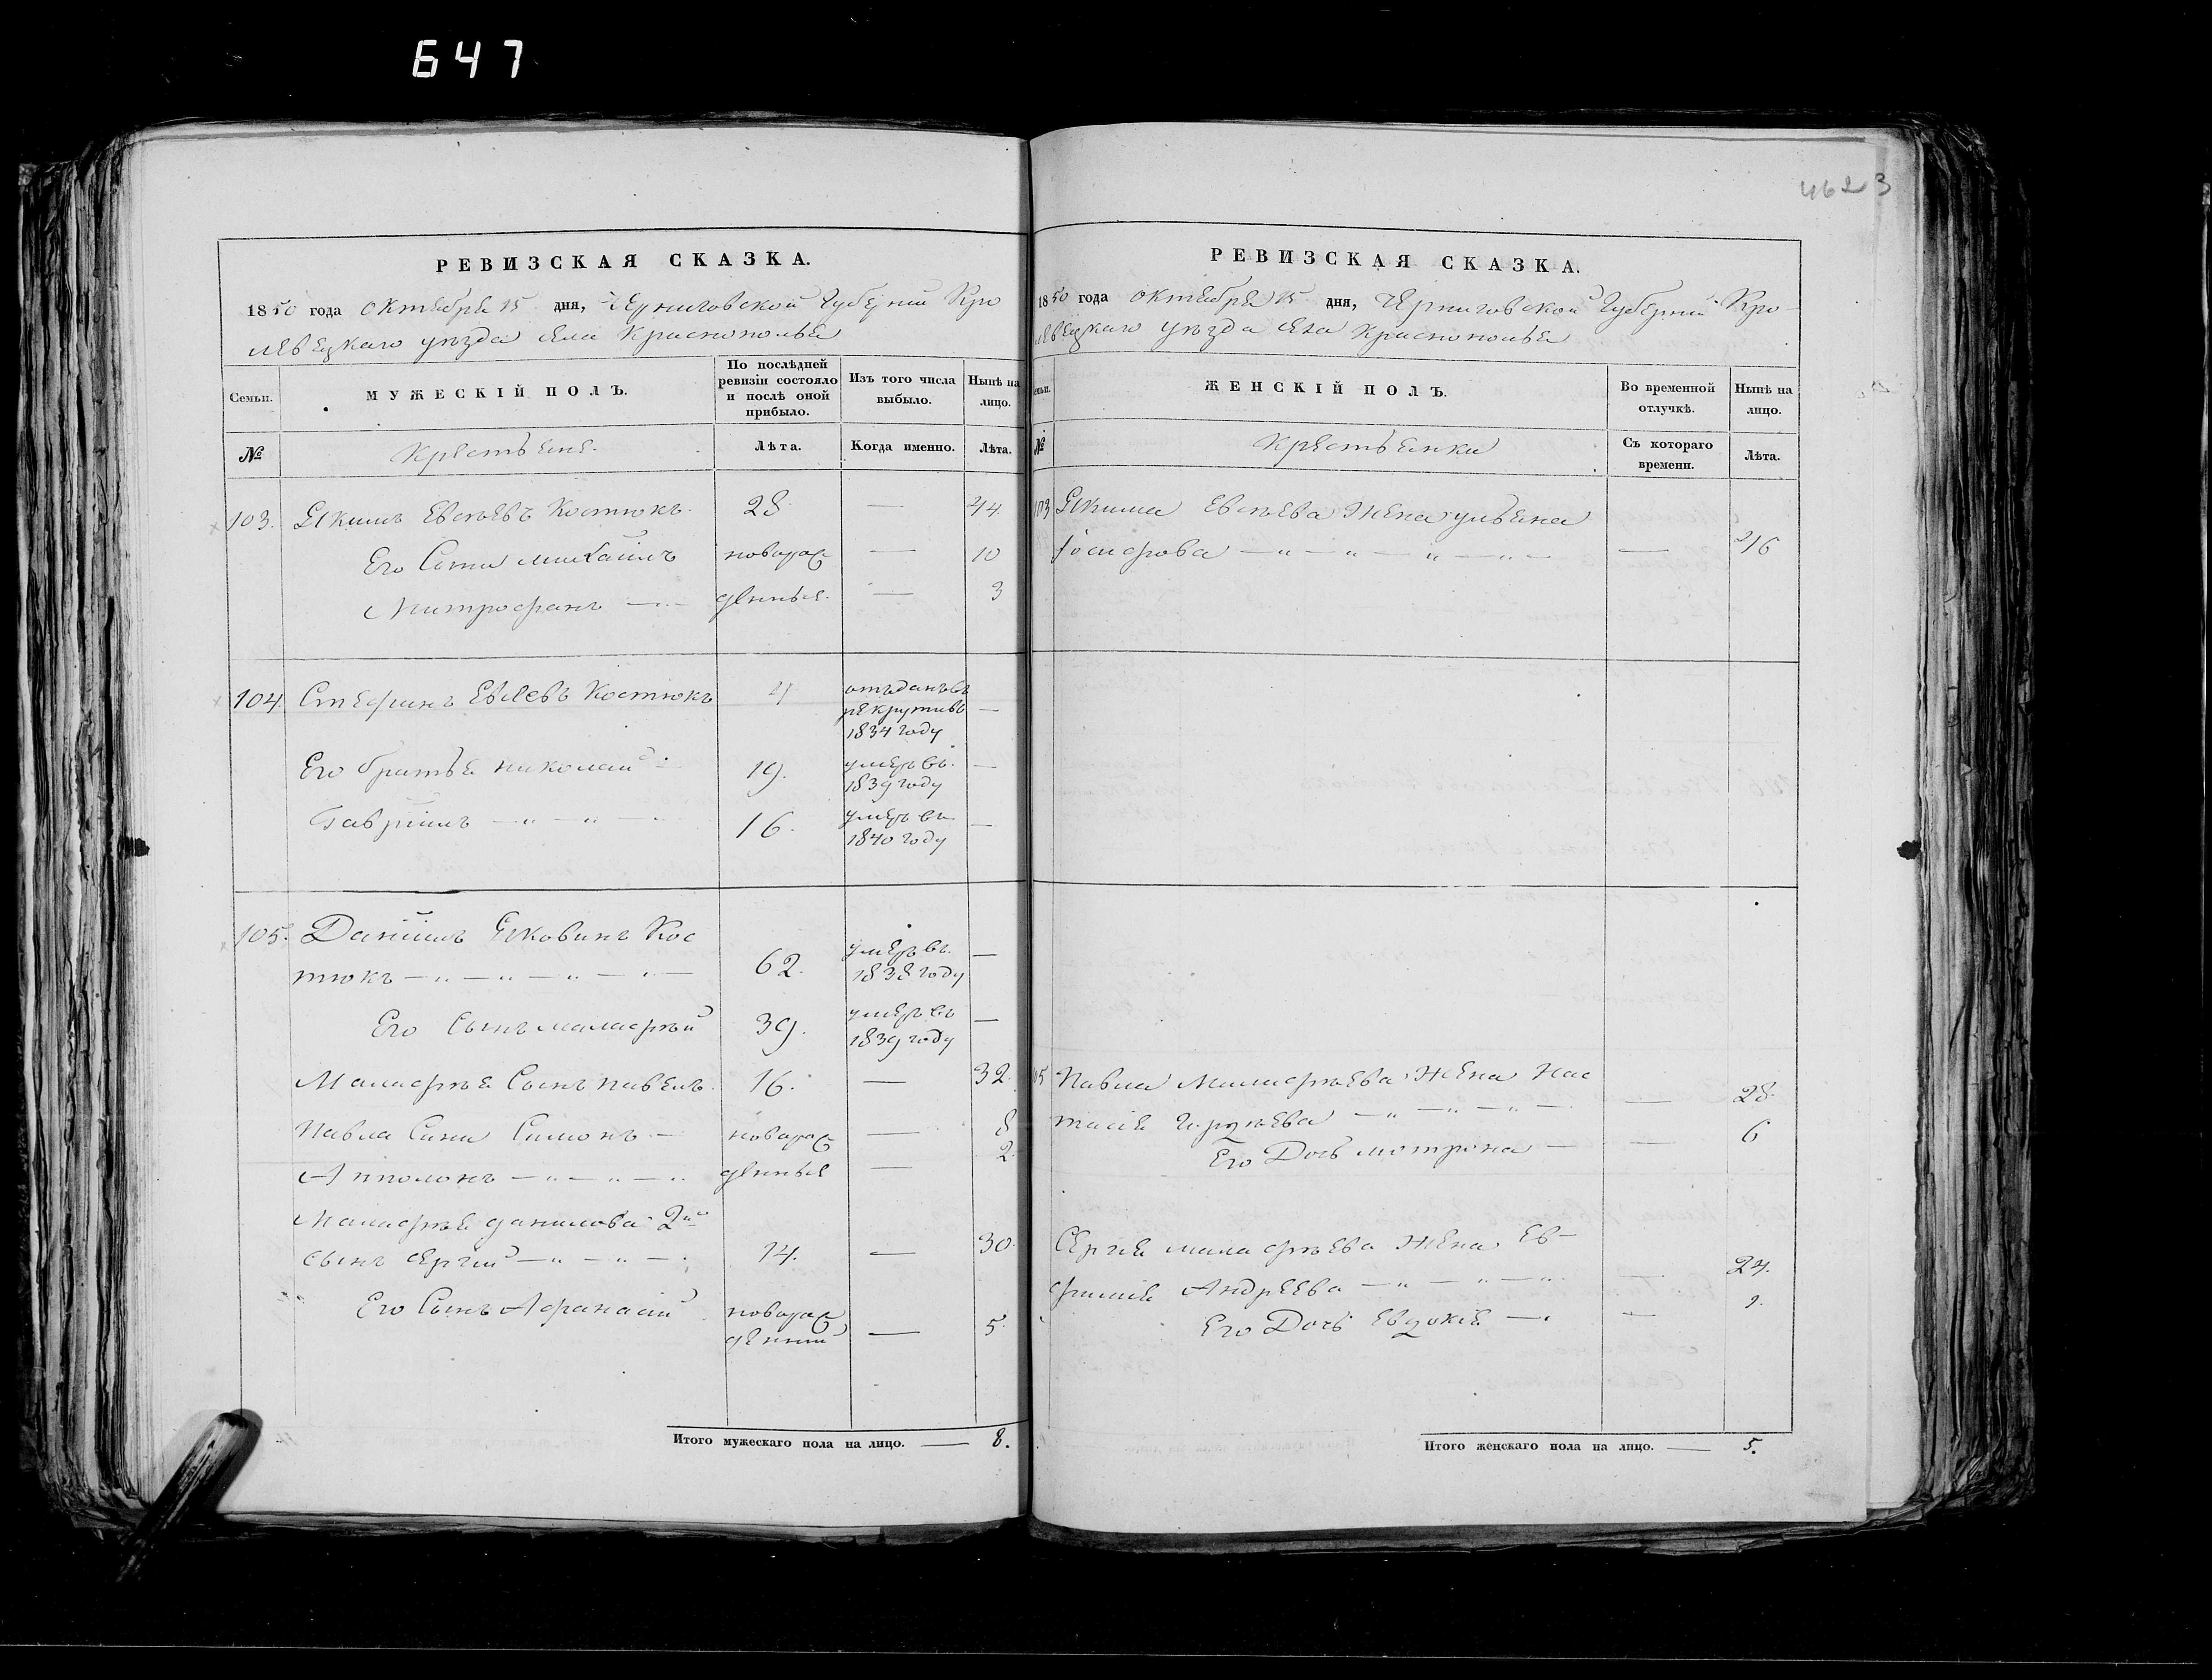 647
4623
РЕВИЗСКАЯ СКАЗКА.
1850 года октября 15 дня, Черниговской Губерній Кро
левецкаго уѣзда села Краснополья
Семьи.
МУЖЕСКІЙ ПОЛЪ.
По послѣдней ревизіи состояло и послѣ оной прибыло.
Изъ того числа выбыло.
Нынѣ на лицо.
№
Крестьяне.
Лѣта.
Когда именно.
Лѣта.
103. Якимъ Евсѣевъ Костюкъ. 28. — 44
Его Сыны Михаилъ новорож — 10
Митрофанъ — денныя. — 3
104 Стефанъ Евсеевъ Костюкъ отъданъ въ
рекруты въ —
1834 году
Его братья Николай 19. умеръ въ. —
1839 году
Гавріилъ — „ — „ — 16. умеръ въ —
1840 году
105. Даніилъ Яковинъ Кос
тюкъ — „ — „ — „ — 62. умеръ въ. —
1838 году
Его Сынъ Маласрѣй 39. умеръ въ —
1839 году
Маласрѣя Сынъ Павелъ. 16. — 32.
Павла Сыны Симонъ — новорож — 8
Апполонъ — „ — „ — денныя — 2.
Маласрѣя Данилова 2й
сынъ Сергій — „ — „ — 14. — 30.
Его Сынъ Афанасій новорож
денный — 5.
Итого мужескаго пола на лицо. — 8.
РЕВИЗСКАЯ СКАЗКА.
1850 года октября 15 дня, Черниговской Губерній Кро-
левецкаго уѣзда села Краснополья
Семьи.
ЖЕНСКІЙ ПОЛЪ.
Во временной отлучкѣ.
Нынѣ на лицо.
№
Крестьянки
Съ котораго времени.
Лѣта.
103 Якима Евсѣева Жена Ульяна
Іосифова — „ — „ — „ — „ — —
105 Павла Маласрѣева Жена Нас
тасія — „ — „ — „ — — 28.
Его Дочь Мотрона — — 6
Сергѣя Маласрѣева Жена Ев-
фимія Андреева — „ — „ — „ — 24.
Его Дочь Евдокія — — 1.
Итого женскаго пола на лицо. — 5.